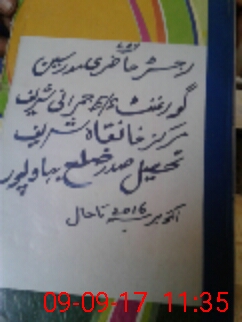 رجسٹر حاضری مدرسین
گورنمنٹ
مرکز خانقاہ شریف
تحصیل صدر ضلع بہاولپور
اکتوبر 2016 تا حال
09-09-17 11:35